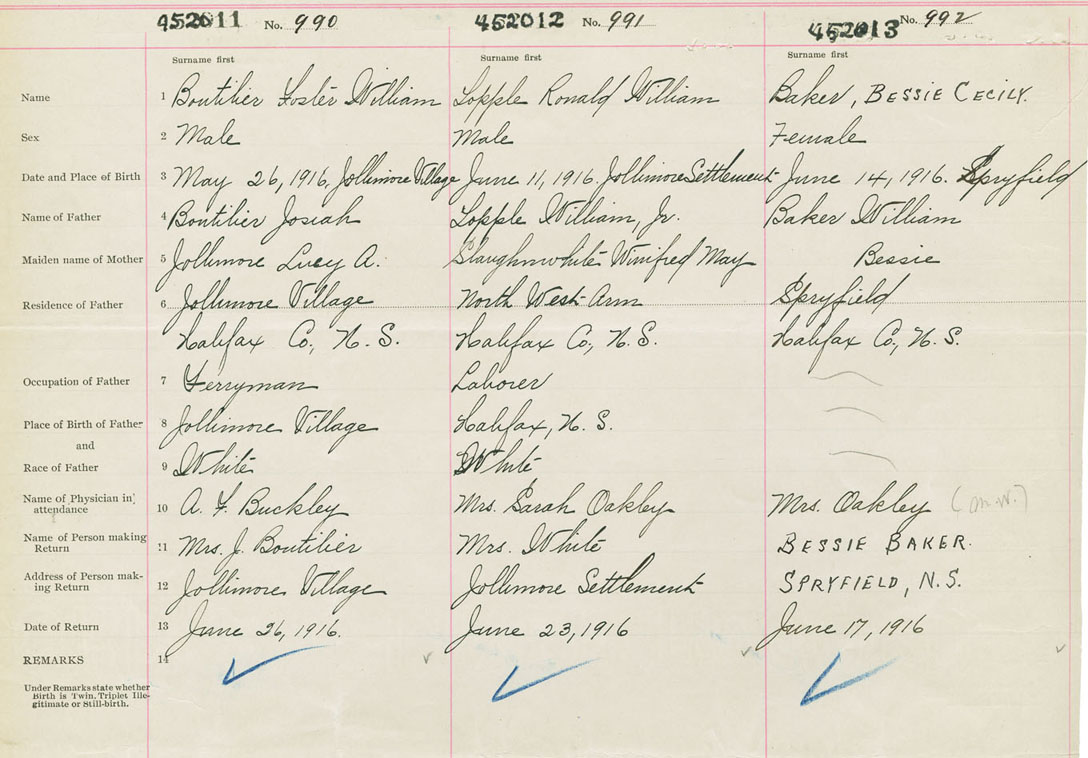 452011 No. 990 452012 No. 991 452013 No. 992
Surname first Surname first Surname first
Name 1 Boutilier Foster William Lopple Ronald William Baker, BESSIE CECILY.
Sex 2 Male Male Female
Date and Place of Birth 3 May 26, 1916, Jollimore Village June 11, 1916. Jollimore Settlement June 14, 1916. Spryfield
Name of Father 4 Boutilier Josiah Lopple William, Jr. Baker William
Maiden name of Mother 5 Jollimore Lucy A. Slaughnwhite Winifred May Bessie
Residence of Father 6 Jollimore Village North West Arm Spryfield
Halifax Co., N. S. Halifax Co., N. S. Halifax Co., N. S.
Occupation of Father 7 Ferryman Laborer
Place of Birth of Father 8 Jollimore Village Halifax, N. S.
and
Race of Father 9 White White
Name of Physician in attendance 10 A. F. Buckley Mrs. Sarah Oakley Mrs. Oakley (M.W.)
Name of Person making Return 11 Mrs. J. Boutilier Mrs. White BESSIE BAKER.
Address of Person mak-ing Return 12 Jollimore Village Jollimore Settlement SPRYFIELD, N.S.
Date of Return 13 June 26, 1916. June 23, 1916 June 17, 1916
REMARKS 14
Under Remarks state whether
Birth is Twin, Triplet Ille-
gitimate or Still-birth.